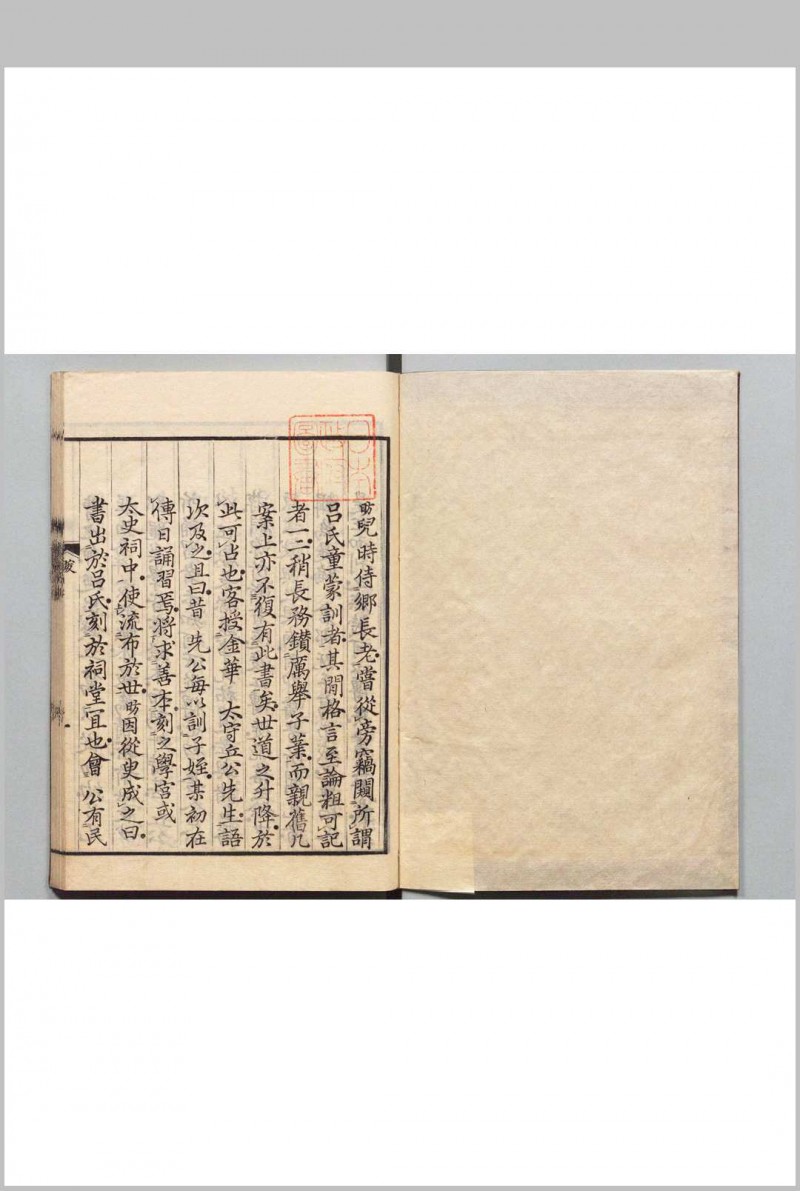 昉兒時侍鄉長老嘗從旁竊闚所謂
呂氏童蒙訓者其間格言至論粗可記
者一二稍長務鑽厲舉子業而親舊几
案上亦不復有此書矣世道之升降於
此可占也客授金華 太守丘公先生語
次及之且曰昔 先公每以訓子姪某初在
傅日誦習焉將求善本刻之學宮或
太史祠中使流布於世昉因從臾成之曰
書出於呂氏刻於祠堂宜也會 公有民
跋
日本
政府
圖書